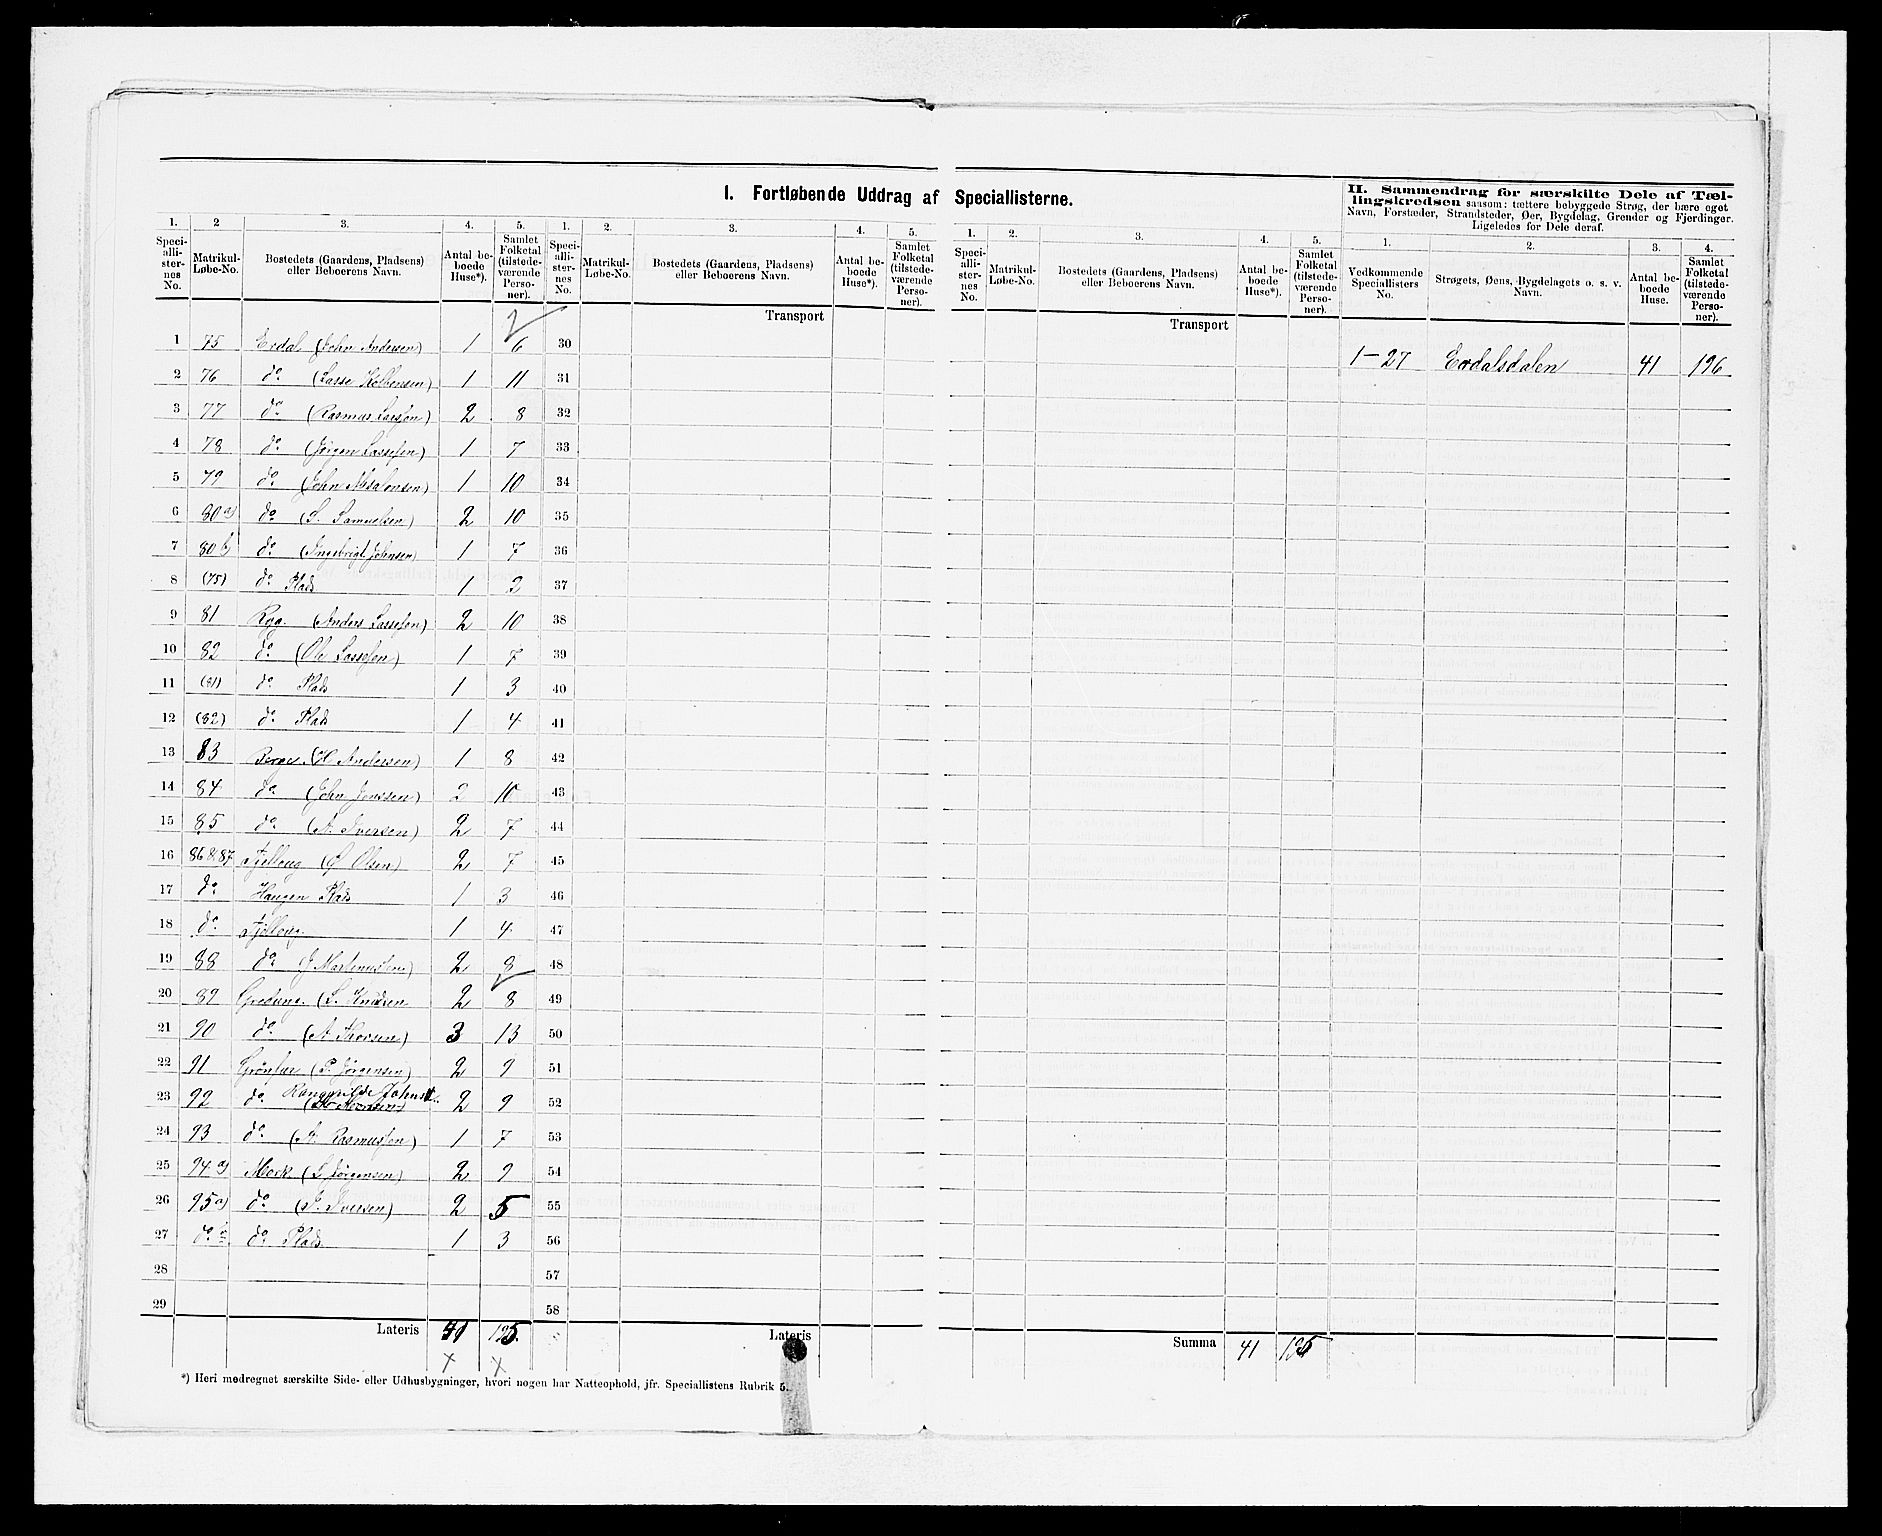 I. Fortløbende Uddrag af Speciallisterne.
II. Sammendrag for særskilte Dele af Tællingskredsen saasom: tættere bebyggede Strøg, der bære eget
Navn, Forstæder, Strandsteder, Øer, Bygdelag, Grender og Fjerdinger.
Ligeledes for Dele deraf.
1. 2 3. 4. 5. 1. 2. 3. 4. 5. 1. 2. 3. 4. 5. 1. 2. 3. 4.
Speciallisternes No. Matrikul-Løbe-No. Bostedets (Gaardens, Pladsens) eller Beboerens Navn. Antal beboede Huse*). Samlet Folketal (tilstedeværende Personer).
Speciallisternes No. Matrikul-Løbe-No. Bostedets (Gaardens, Pladsens) eller Beboerens Navn. Antal beboede Huse*). Samlet Folketal (tilstedeværende Personer).
Speciallisternes No. Matrikul-Løbe-No. Bostedets (Gaardens, Pladsens) eller Beboerens Navn. Antal beboede Huse*). Samlet Folketal (tilstedeværende Personer).
Vedkommende Speciallisters No. Strøgets, Øens, Bygdelagets o. s. v. Navn. Antal beboede Huse. Samlet Folketal (tilstedeværende Personer).
Transport Transport
1 75 Erdal (John Andersen) 1 6 30
1-27 Erdalsdalen 41 196
2 76 do (Lasse Kolbensen) 1 11 31
3 77 do (Rasmus Larssen) 2 8 32
4 78 do (Jørgen Lassesen) 1 7 33
5 79 do (John Absalonsen) 1 10 34
6 80 a) do (S. Samuelsen) 2 10 35
7 80 b) do (Ingebrigt Johnsen) 1 7 36
8 (75) do Plads 1 2 37
9 81 Ryg. (Anders Lassesen) 2 10 38
10 82 do (Ole Lassesen) 1 7 39
11 (81) do Plads 1 3 40
12 (82) do Plads 1 4 41
13 83 Berge (H Andersen) 1 8 42
14 84 do (John Jenssen) 2 10 43
15 85 do (A. Iversen) 2 7 44
16 86 & 87 Tjellaug (Ø Olsen) 2 7 45
17 do Haugen Plads 1 3 46
18 do Tjellaug 1 4 47
19 88 do (J Martinussen) 2 8 48
20 89 Gredung (S. Knudsen 2 8 49
21 90 do (A. Thorsen) 3 13 50
22 91 Grønfur (P. Jørgensen) 2 9 51
23 92 do Rangvilde Johns 2 9 52
24 93 do (A. Rasmussen) 1 7 53
25 94 a) Mork (S. Jørgensen) 2 9 54
26 95 a) do (S. Iversen) 2 5 55
27 do do Plads 1 3 56
28 57
29 58
Lateris 41 195 Lateris Summa 41 195
*) Heri medregnet særskilte Side- eller Udhusbygninger, hvori nogen har Natteophold, jfr. Speciallistens Rubrik 5.